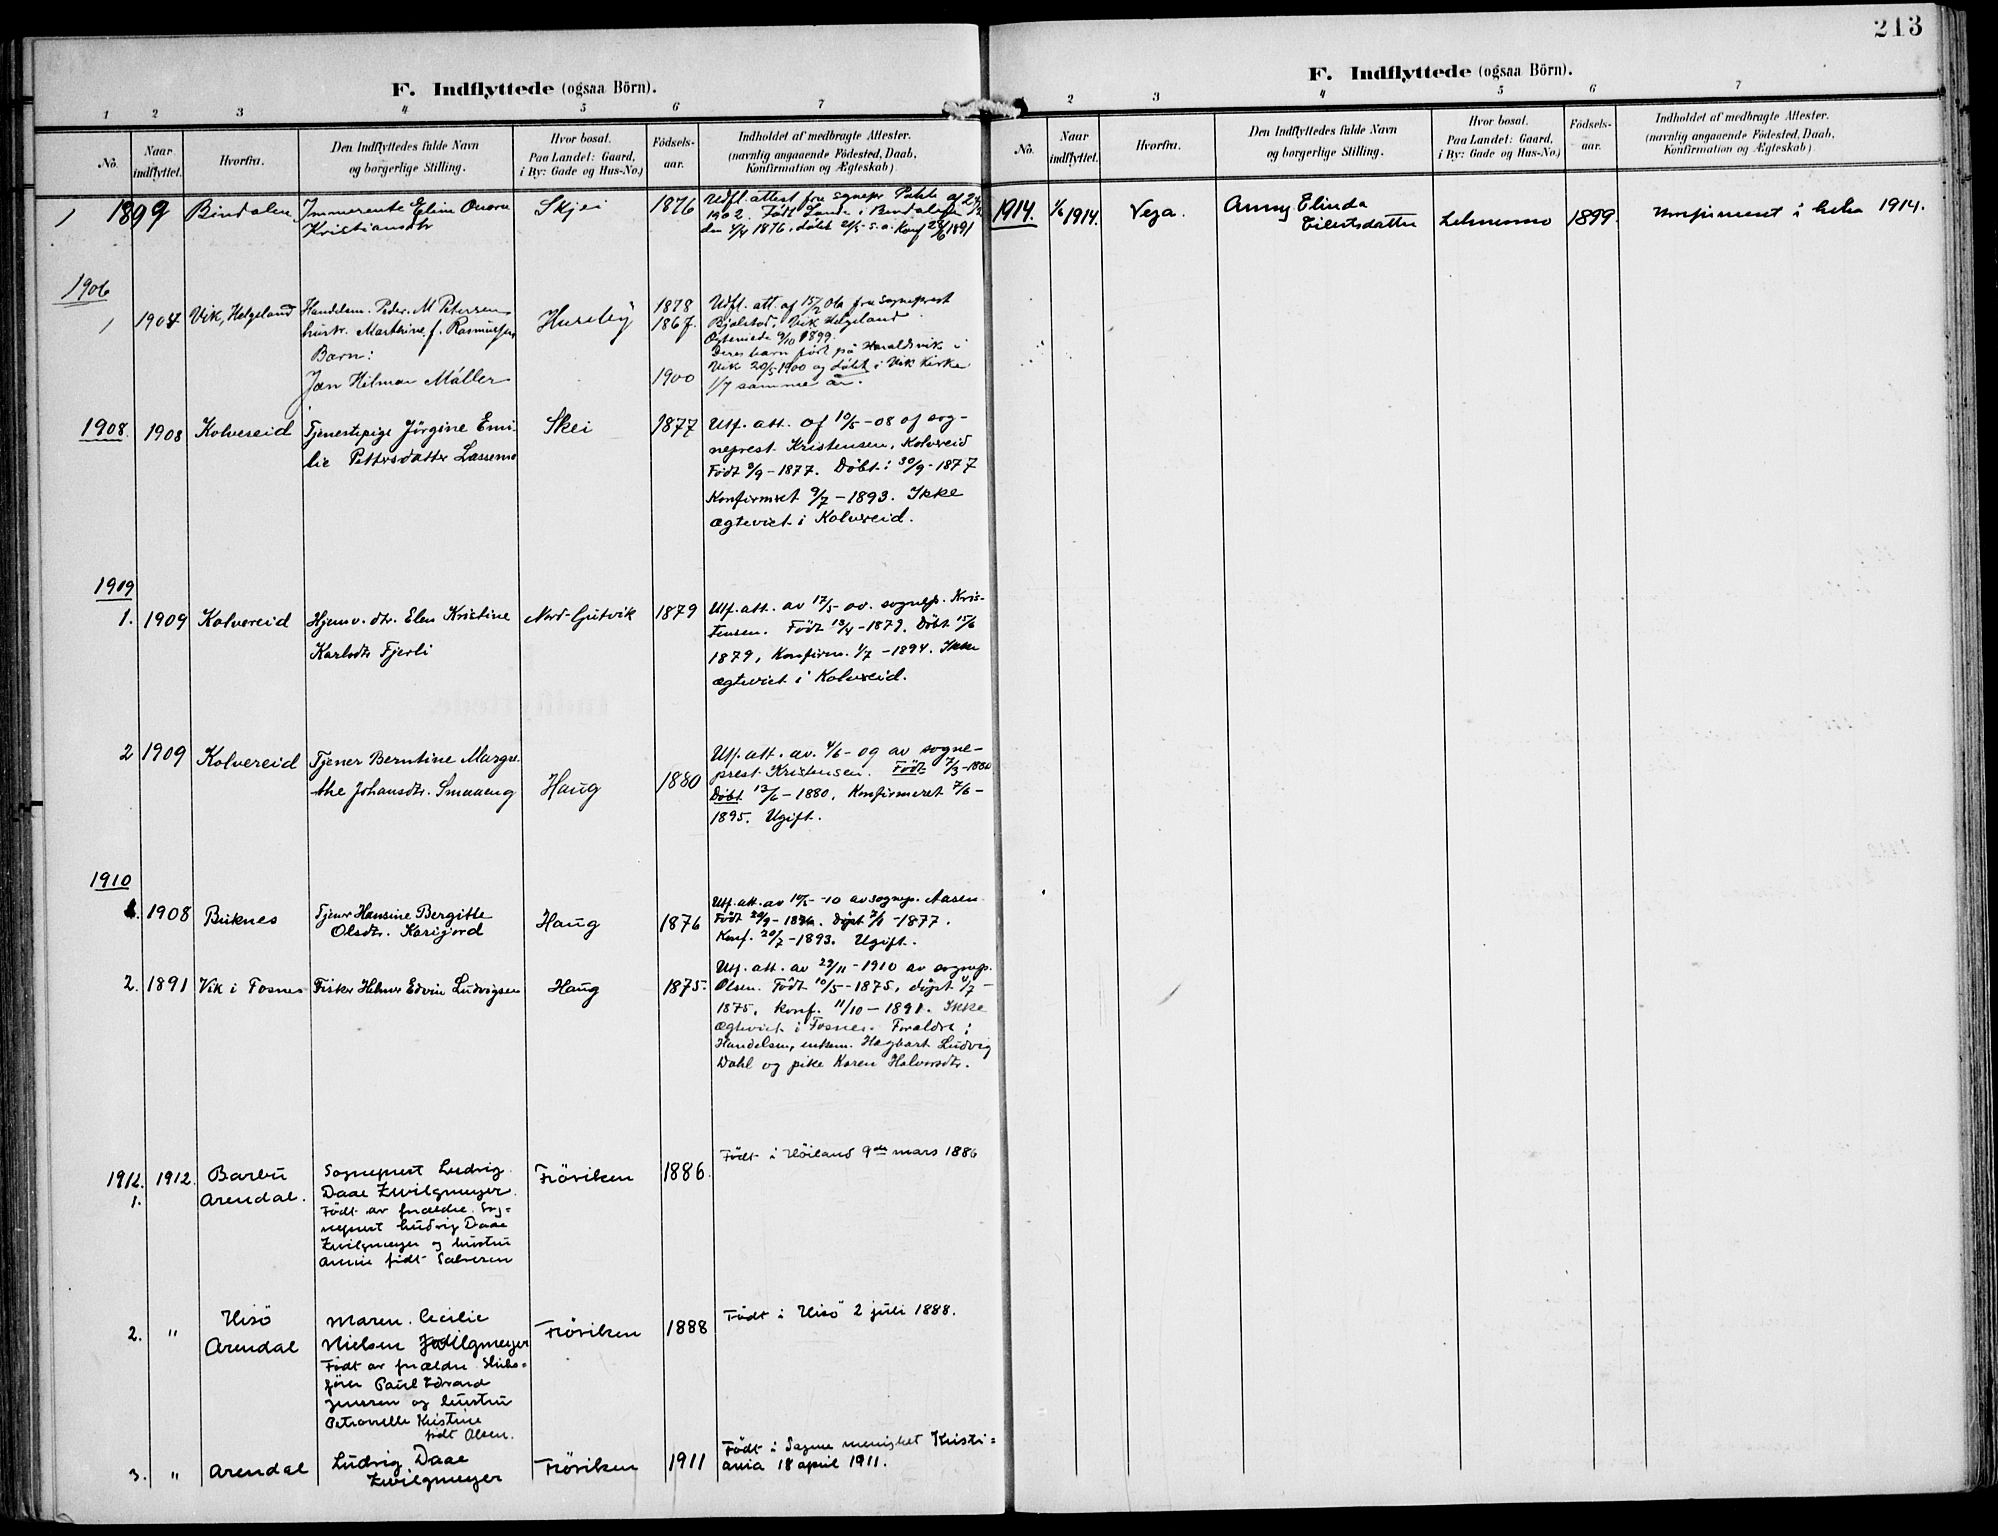 213
F. Indflyttede (ogsaa Börn).
1 2 3 4 5 6 7
No. Naar indflyttet. Hvorfra. Den Indflyttedes fulde Navn og borgerlige Stilling. Hvor bosat. Paa Landet: Gaard, i By: Gade og Hus-No.) Födsels-aar. Indholdet af medbragte Attester. (navnlig angaaende Födested, Daab, Konfirmation og Ægteskab)
1 1899 Bindalen
Kristiansdtr
Skjei 1876
Udfl. attest fra sognepr.
1902. Født
den 1876, døbt s. a. Konf 1891
1906
1 1904 Vik, Helgeland
Handelsm. Peder M Petersen
hustr. Marthine f. Rasmussen
Barn:
Jan Hilmar Møller
Husby
1878
1867.
1900
Udfl. att af 15/2 06 fra sogneprest
Bjølstad, Vik Helgeland
Ægteviede 9/10 1899.
Deres barn født på Haraldsvik i
Vik 20/5 1900 og døbt i Vik kirke
1/7 samme år.
1908 1908 Kolvereid
Tjenestepige Jørgine Emi-
lie Pettersdatter Lassemo
Skei 1877
Utf. att. af 10/5-08 af sog-
neprest Kristensen, Kolvereid
Født 3/9-1877. Døbt: 30/9-1877
Konfirmeret 9/7-1893. Ikke
ægteviet i Kolvereid.
1909
1. 1909 Kolvereid
Hjemv. dtr. Elen Kristine
Karlsdtr Fjerli
Nord-Gutvik 1879
Utf. att. av 17/5 av. sognep. Kris-
tensen. Født 13/4-1879. Døbt 15/6
1879, Konfirm. 1/7-1894. Ikke
ægteviet i Kolvereid.
2 1909 Kolvereid
Tjener Berntine Margre-
the Johansdtr. Smaaeng
Haug 1880
Utf. att. av. 4/6-09 av sogne-
prest Kristensen. Født 7/3-1880
Døbt 13/6-1880, Konfirmeret 7/6-
1895. Ugift.
1910
1. 1908 Buknes
Tjener Hansine Bergitte
Olsdtr. Karijord
Haug 1876
Utf. att. av 10/5-10 av sognep. Aasen.
Født 29/9-1876. Døpt 7/1-1877.
Konf. 20/7-1893. Ugift.
2. 1891 Vik i Fosnes
Fisker Hilmar Edvin Ludvigsen
Haug 1875.
Utf. att. av 29/11-1910 av sognep.
Olsen. Født 10/5-1875, døpt 4/7-
1875, konf. 11/10-1891. Ikke
ægteviet i Fosnes. Forældre:
Handelsm, enkem. Hagbart Ludvig
Dahl og pike Karen Halvorsdtr.
1912. 1. 1912. Barbu
Arendal.
Sogneprest Ludvig
Daae Zwilgmeyer.
Født av forældre. Sog-
neprest Ludvig Daae
Zwilgmeyer og hustru
Annie født Salvesen
Frøviken 1886.
Født i Høiland 9de mars 1886
2. " Hisø
Arendal
Maren. Cecilie
Nielsen Zwilgmeyer
Født av forældre Skibs-
fører Paul Edvard
Jensen og hustru
Petronelle Kristine
født Olsen.
Frøviken 1888
Født i Hisø 2 juli 1888.
3. " Arendal
Ludvig Daae
Zwilgmeyer
Frøviken 1911
Født i Sagene menighet Kristi-
ania 18 april 1911.
F. Indflyttede (ogsaa Börn).
1 2 3 4 5 6 7
No. Naar indflyttet. Hvorfra. Den Indflyttedes fulde Navn og borgerlige Stilling. Hvor bosat. Paa Landet: Gaard, i By: Gade og Hus-No.) Födsels-aar. Indholdet af medbragte Attester. (navnlig angaaende Födested, Daab, Konfirmation og Ægteskab)
1914. 1/6 1914. Vega.
Anny Elinda
Eilertsdatter
1899. Konfirmeret i Leka 1914.